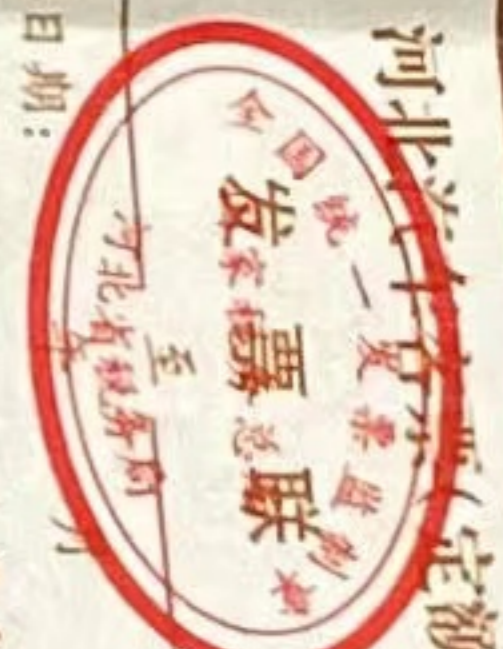 河北汽车客票(定额
全国统一发票监制章
发票联
国家税务总局
至
河北省税务局
日期: